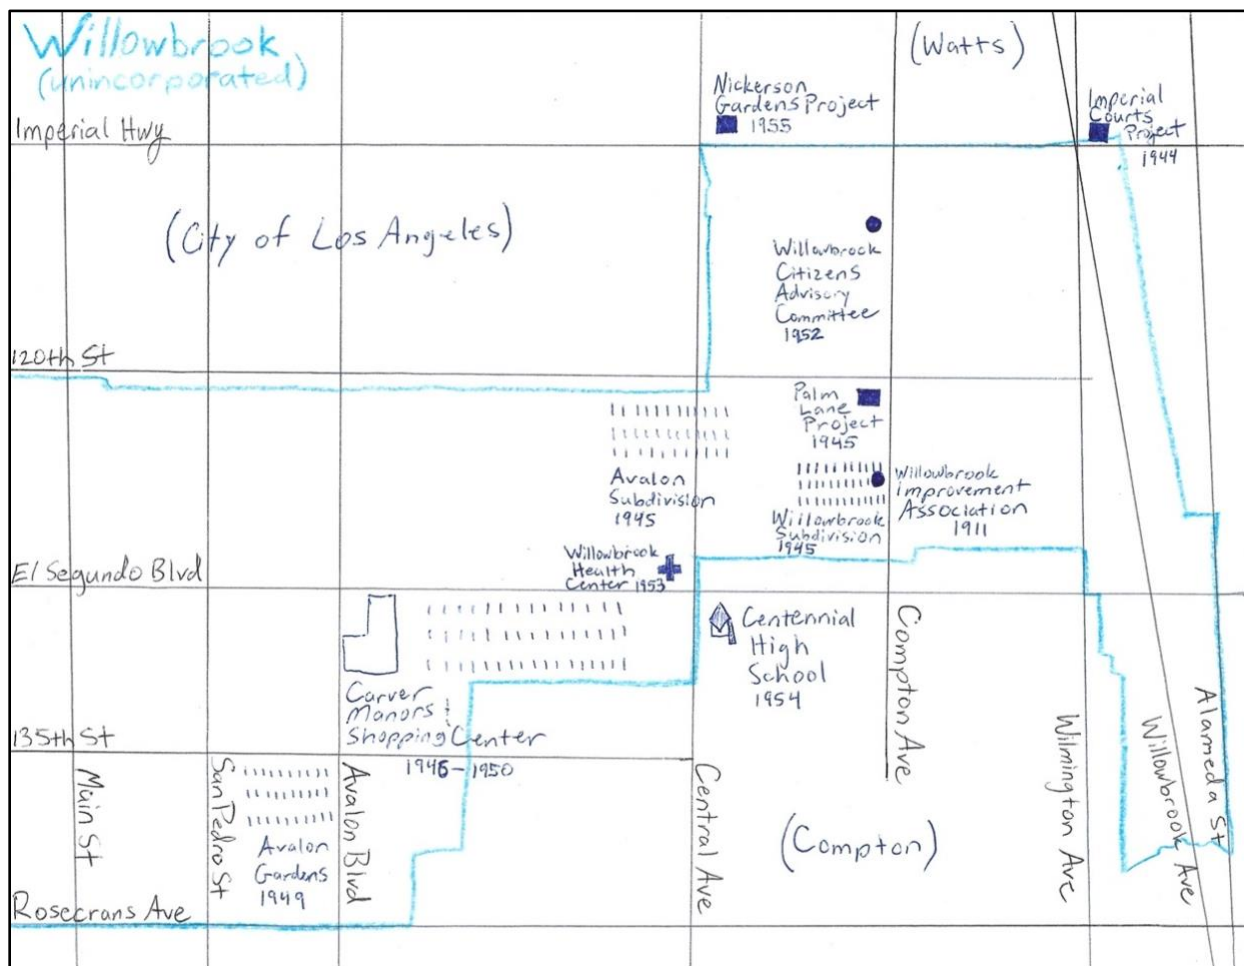 Willowbrook
(unincorporated)
(Watts)
Nickerson
Gardens Project
1955
Imperial
Courts
Project
1944
Imperial Hwy
(City of Los Angeles)
Willowbrook
Citizens
Advisory
Committee
1952
120th St
Palm
Lane
Project
1945
Avalon
Subdivision
1945
Willowbrook
Improvement
Association
1911
Willowbrook
Subdivision
1945
Willowbrook
Health
Center 1953
El Segundo Blvd
Centennial
High
School
1954
Carver
Manors &
Shopping Center
1946-1950
135th St
Main St
San Pedro St
Avalon Blvd
Avalon
Gardens
1949
Central Ave
Compton Ave
(Compton)
Wilmington Ave
Willowbrook Ave
Alameda St
Rosecrans Ave